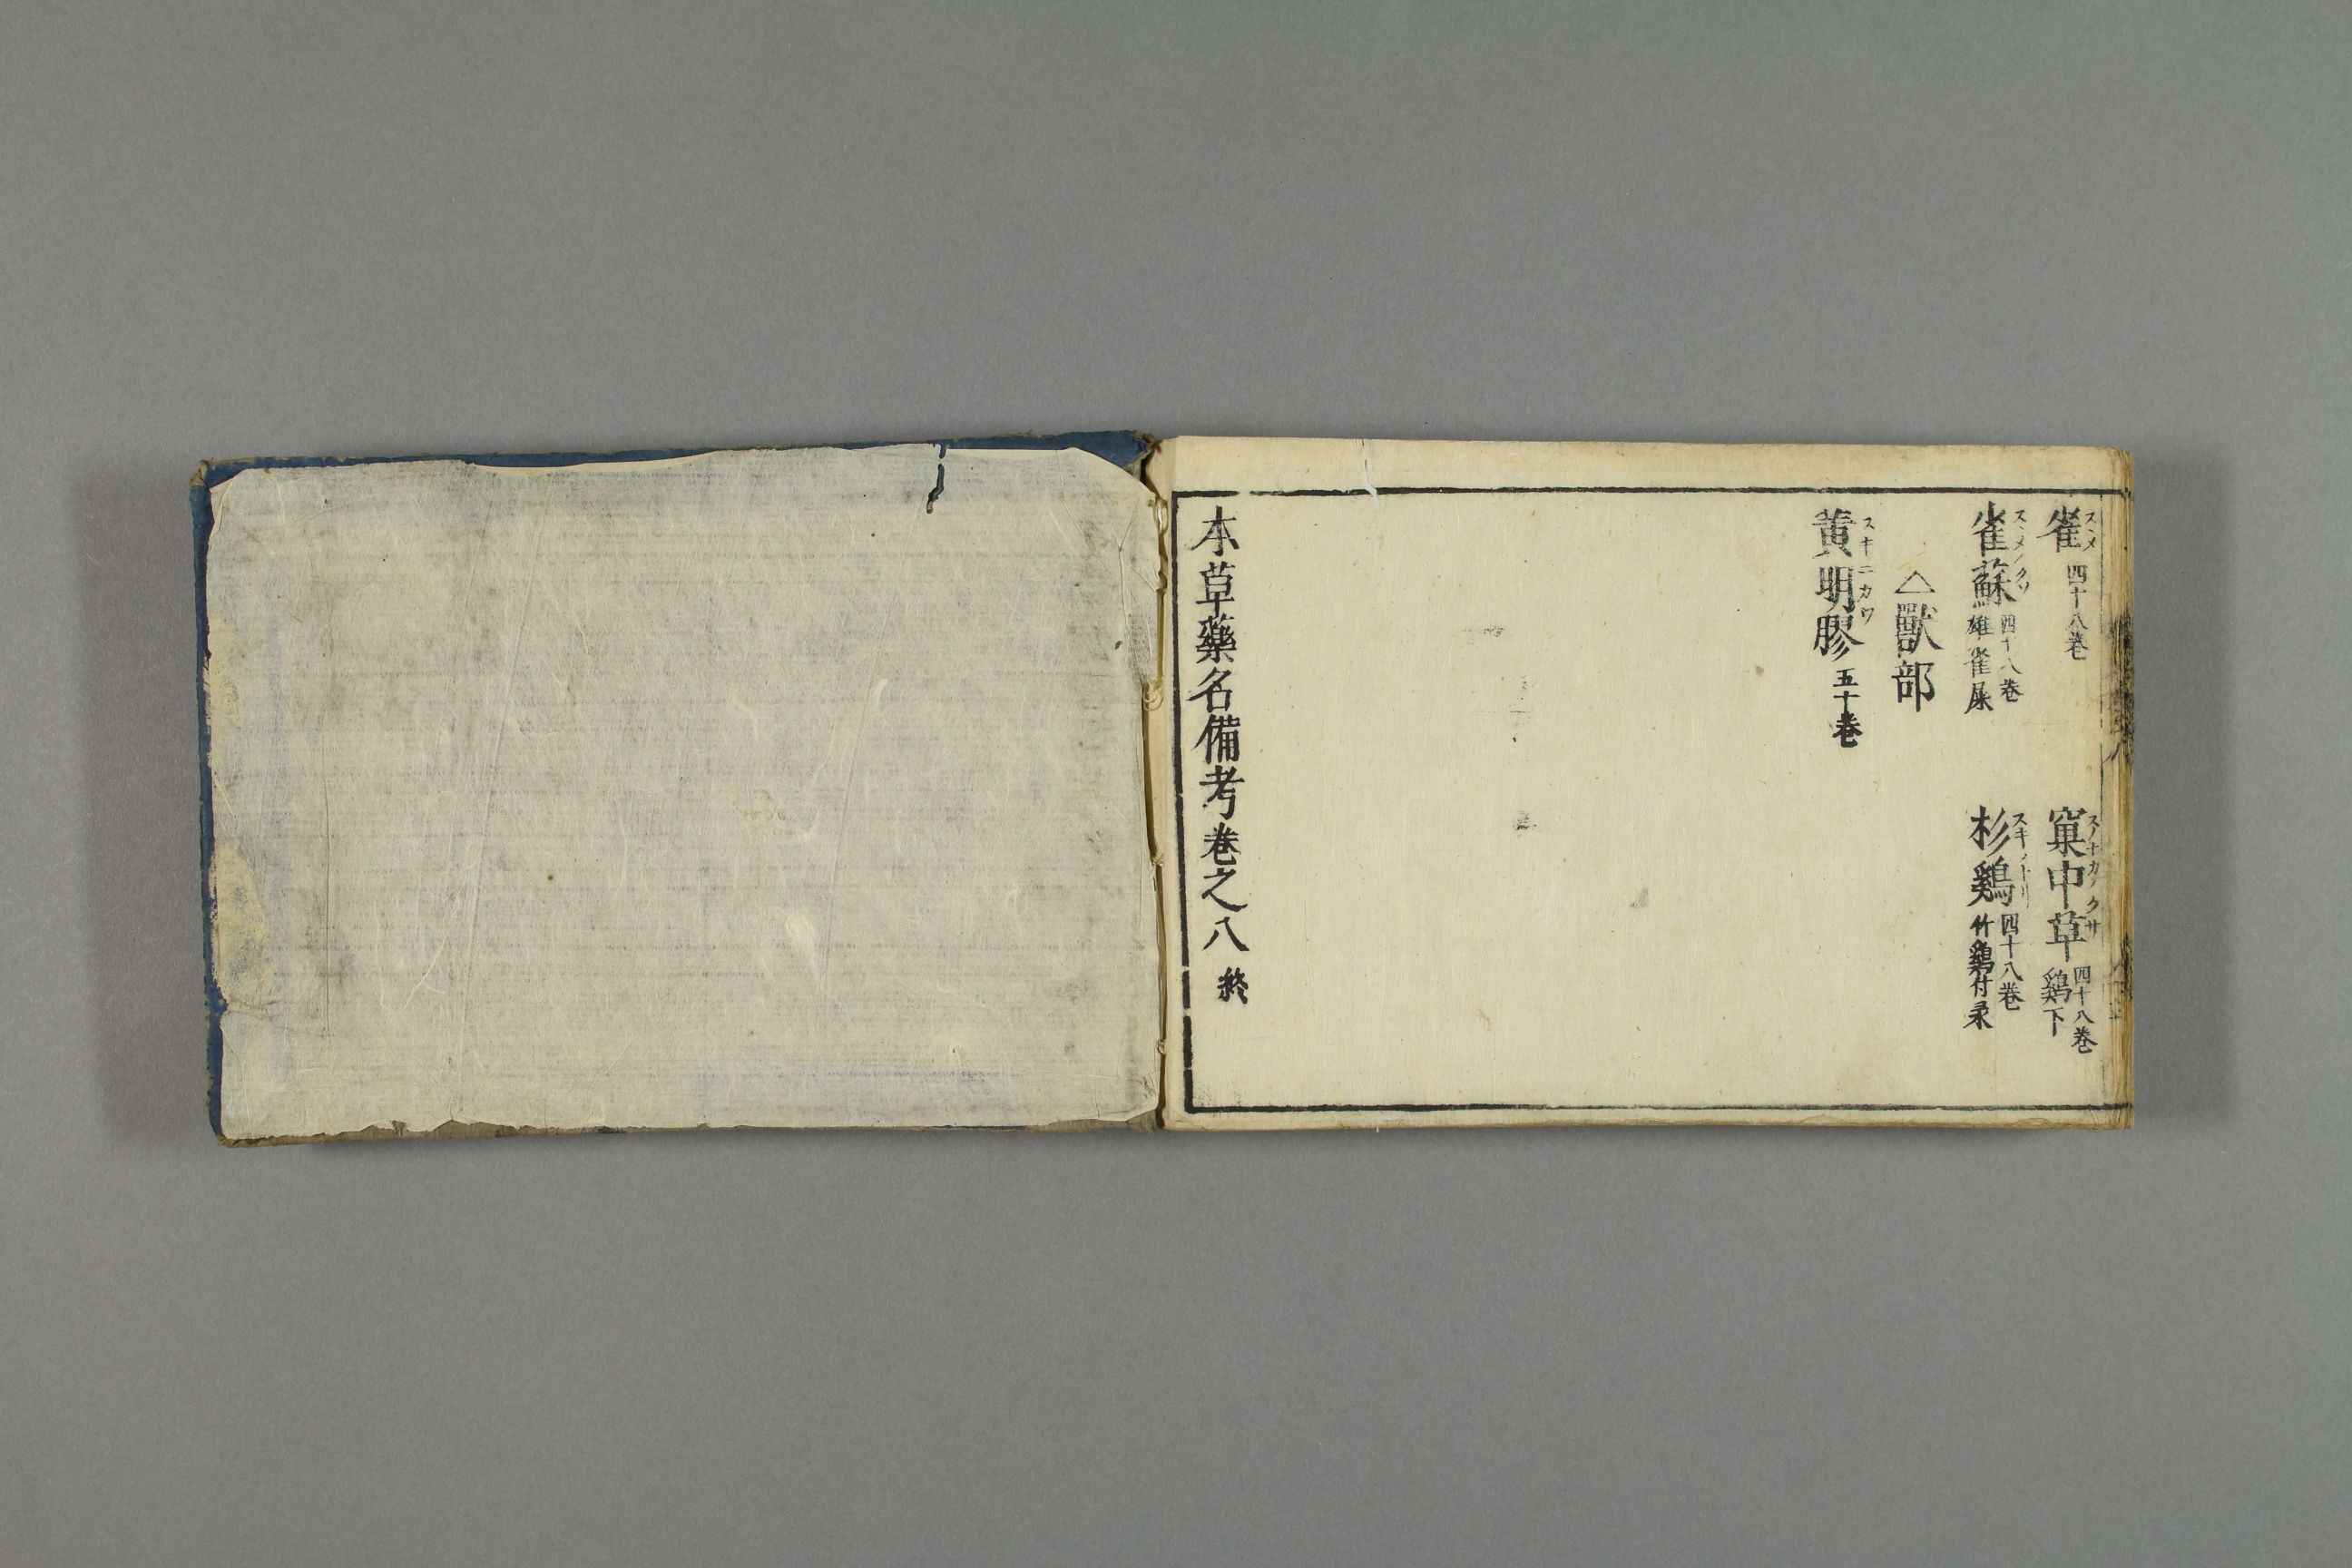 雀 スヽメ 四十八巻 窠中草 スノナカノクサ 四十八巻 鷄下
雀蘇 スヽメノクソ 四十八巻 雄雀屎 杉鷄 スキノトリ 四十八巻 竹鷄付录
△獸部
黄明膠 スキニカワ 五十巻
本草藥名備考巻之八 終